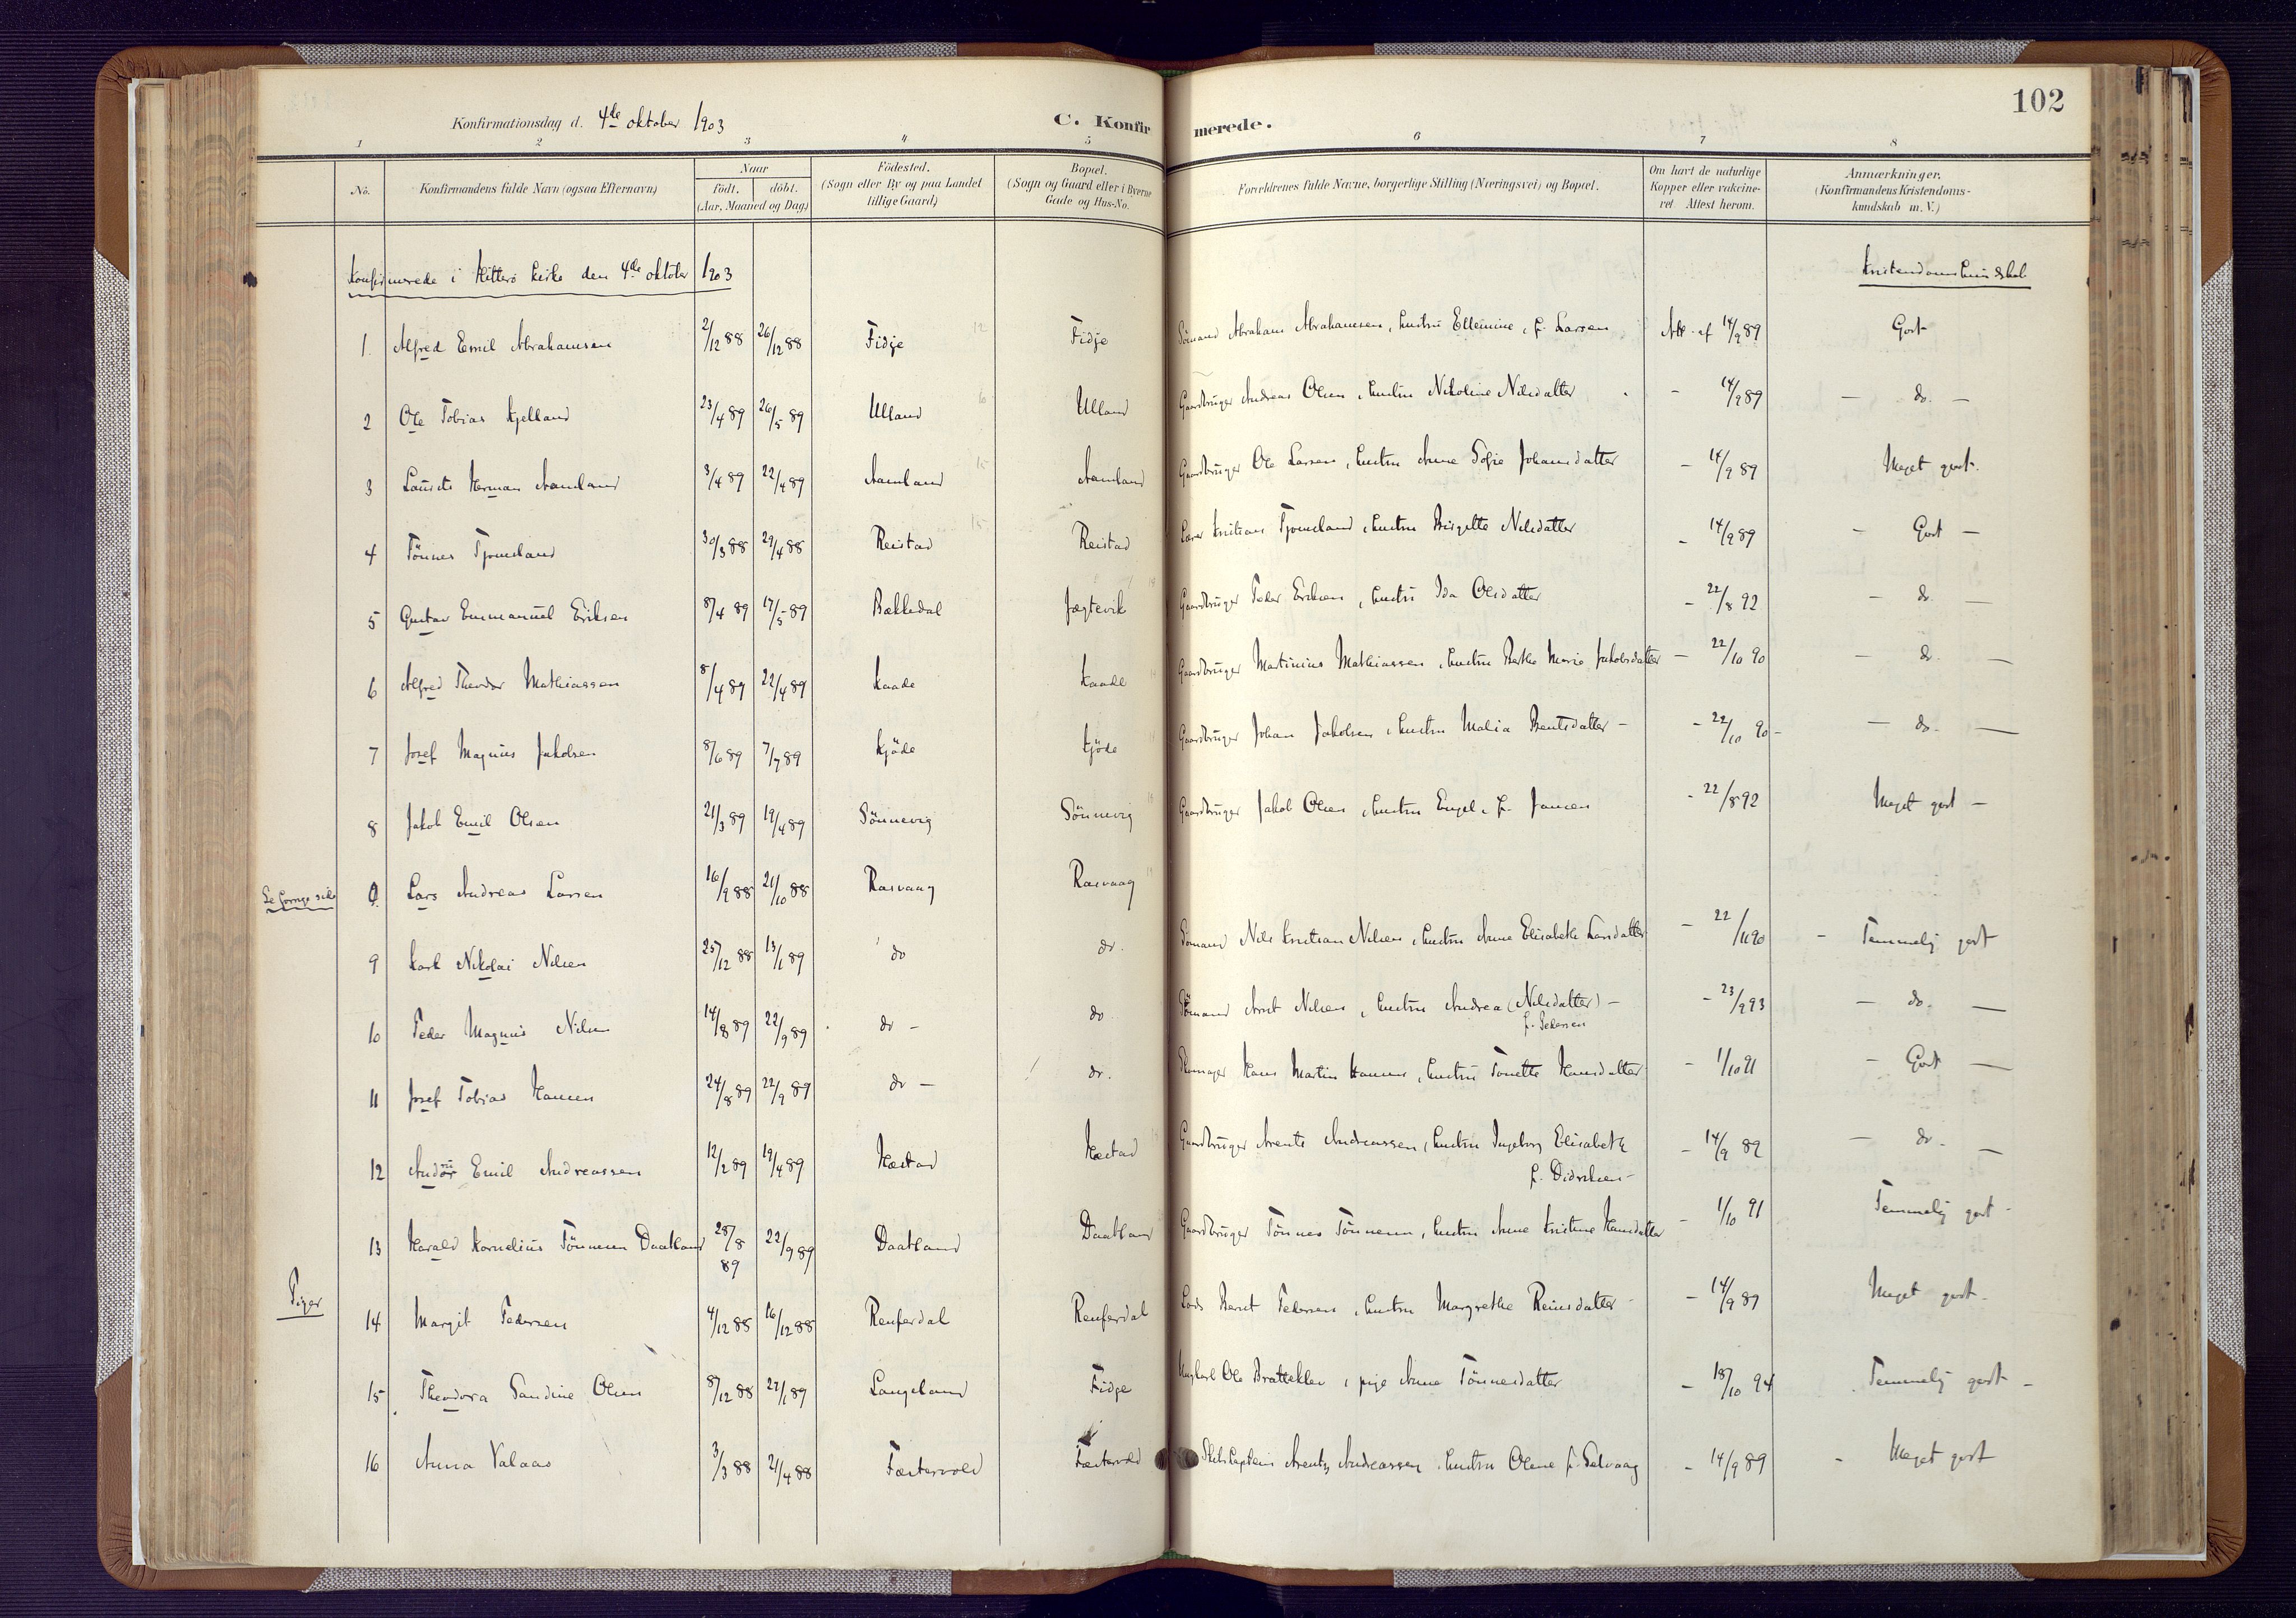 102
Konfirmationsdag d. 4de oktober 1903 C. Konfirmerede.
1 2 3 4 5 6 7 8
No. Konfirmandens fulde Navn (ogsaa Efternavn) Naar födt. döbt. (Aar, Maaned og Dag) Födested. (Sogn eller By og paa Landet tillige Gaard) Bopæl. (Sogn og Gaard eller i Byerne Gade og Hus-No. Forældrenes fulde Navne, borgerlige Stilling (Næringsvei) og Bopæl. Om havt de naturlige Kopper eller vakcineret. Attest herom. Anmærkninger. (Konfirmandens Kristendomskundskab m. V.)
Konfirmerede i Hitterö kirke den 4de oktober 1903 Kristendomskundskab
1 Alfred Emil Abrahamsen 2/12 88 26/12 88 Fidje Fidje Sömand Abraham Abrahamsen, hustru Ellemine, f. Larsen Att. af 14/9 89 Godt
2 Ole Tobias Kjelland 23/4 89 26/5 89 Ulland Ulland Gaardbruger Andreas Olsen, hustru Nikoline Nilsdatter - 14/9 89 - do. -
3 Laurits Herman Aamland 3/4 89 22/4 89 Aamland Aamland Gaardbruger Ole Larsen, hustru Anne Sofie Johannsdatter - 14/9 89 Meget godt.
4 Tönnes Tjomsland 30/3 88 29/4 88 Reistad Reistad Lærer Kristian Tjomsland, hustru Birgitte Nilsdatter - 14/9 89 - Godt -
5 Gustav Emmanuel Eriksen 8/4 89 17/5 89 Bækkedal Jægtevik Gaardbruger Peder Eriksen, hustru Ida Olsdatter - 22/8 92 - do. -
6 Alfred Theodor Mathiassen 8/4 89 22/4 89 Kaade Kaade Gaardbruger Martinius Mathiassen, hustru Berthe Marie Jakobsdatter - 22/10 90 - do. -
7 Josef Magnus Jakobsen 8/6 89 7/7 89 Kjöde Kjöde Gaardbruger Johan Jakobsen, hustru Malia Berntsdatter - - 22/10 90 - - do. -
8 Jakob Emil Olsen 21/3 89 19/4 89 Sönnevig Sönnevig Gaardbruger Jakob Olsen, hustru Engel, f. Jansen - 22/8 92 Meget godt -
Se forrige side 0. Lars Andreas Larsen 16/9 88 21/10 88 Rasvaag Rasvaag
9 Karl Nikolai Nilsen 25/12 88 13/1 89 do do. Sömand Nils Kristian Nilsen, hustru Anne Elisabeth Larsdatter - 22/11 90 - Temmelig godt
10 Peder Magnus Nilsen 14/8 89 22/9 89 do - do Sömand Arnt Nilsen, hustru Andrea (Nilsdatter) - - 23/9 93 - do. -
f. Pedersen
11 Josef Tobias Hansen 24/8 89 22/9 89 do - do. Skomager Hans Martin Hansen, hustru Tonette Hansdatter - 1/10 91 - Godt -
12 Andor Emil Andreassen 12/2 89 19/4 89 Hæstad Hæstad Gaardbruger Arents Andreassen, hustru Ingeborg Elisabeth - 14/9 89 - do. -
f. Didriksen -
13 Harald Kornelius Tönnessen Daatland 28/8 89 22/9 89 Daatland Daatland Gaardbruger Tönnes Tönnesen, hustru Anne Kristine Hansdatter - 1/10 91 Temmelig godt -
Piger
14 Margit Pedersen 4/12 88 16/12 88 Renferdal Renferdal Lods Berent Pedersen, hustru Margrethe Reinsdatter - - 14/9 89 Meget godt.
15 Theodora Sandine Olsen 8/12 88 27/1 89 Langeland Fidje Ungkarl Ole Bratteklev, pige Anne Tönnesdatter - 18/10 94 Temmelig godt -
16 Anna Valaas 3/3 88 21/4 88 Fæstervold Fæstervold Skibskaptein Arents Andreassen, hustru Olene f. Selvaag - 14/9 89 - Meget godt